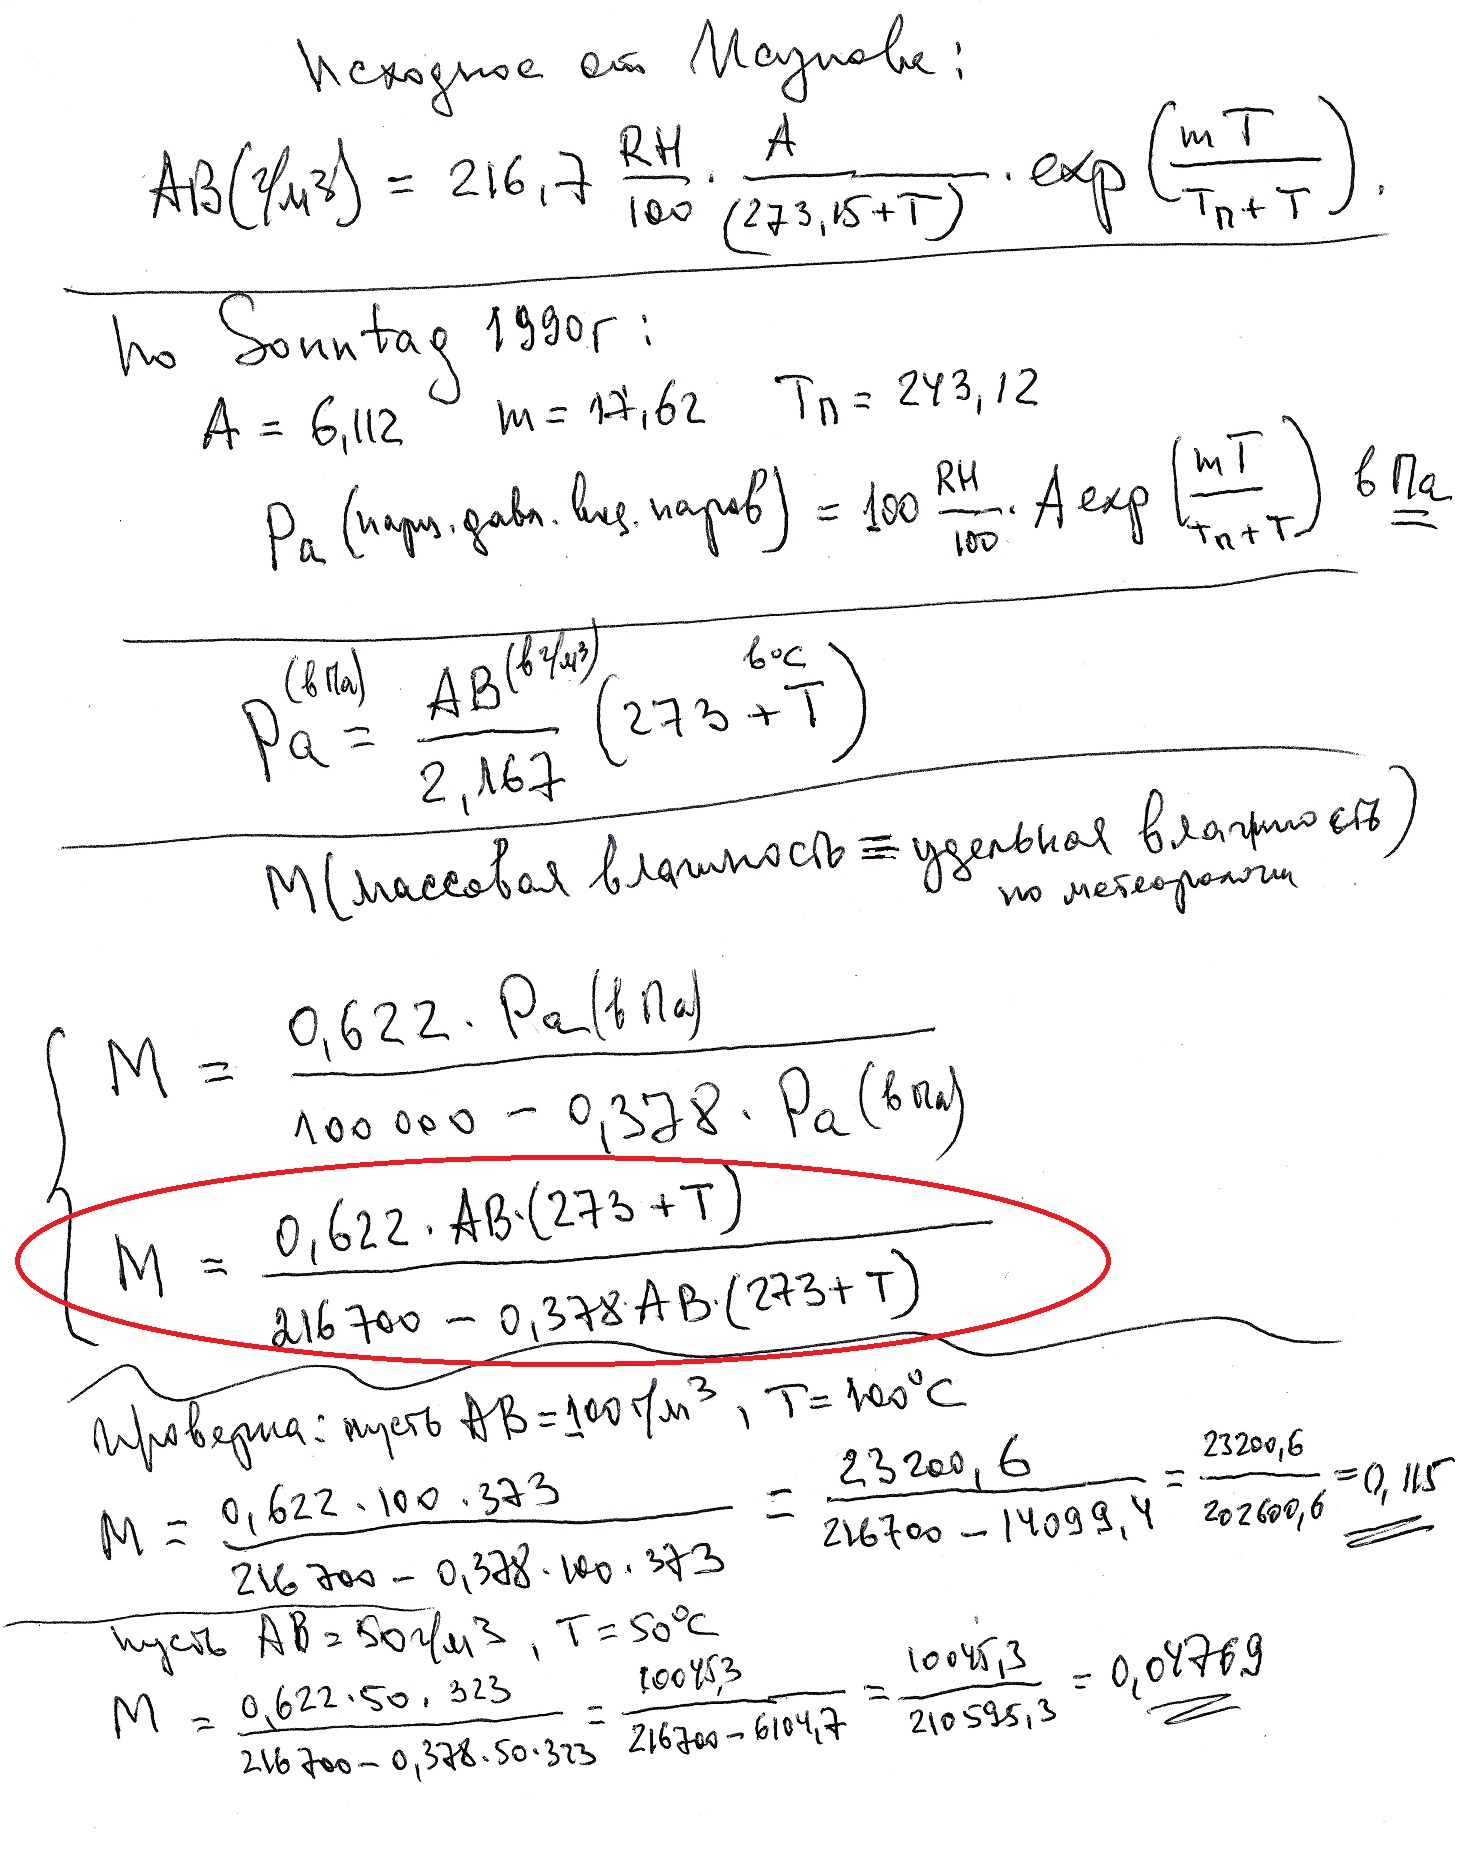 Исходное от Маунова:
АВ(г/м3) = 216,7 RH/100 · A/(273,15+T) · exp(mT/(Tп+T)).
по Sonntag 1990г:
A = 6,112 m = 17,62 Tп = 243,12
Pa (парц. давл. вод. паров) = 100 RH/100 · A exp(mT/(Tп+T)) в Па
Pa (в Па) = АВ (в г/м³)/2,167 (273 + T) в °С
М (массовая влажность ≡ удельная влажность)
по метеорологии
M = 0,622 · Pa (в Па) / 100 000 – 0,378 · Pa (в Па)
M = 0,622 · АВ·(273+T) / 216700 – 0,378·АВ·(273+T)
проверка: пусть АВ = 100 г/м³, T = 100°С
M = 0,622 · 100 · 373 / 216700 – 0,378 · 100 · 373 = 23200,6 / 216700 – 14099,4 = 23200,6 / 202600,6 = 0,115
пусть АВ = 50 г/м3, T = 50°С
M = 0,622 · 50 · 323 / 216700 – 0,378 · 50 · 323 = 10045,3 / 216700 – 6104,7 = 10045,3 / 210595,3 = 0,04769